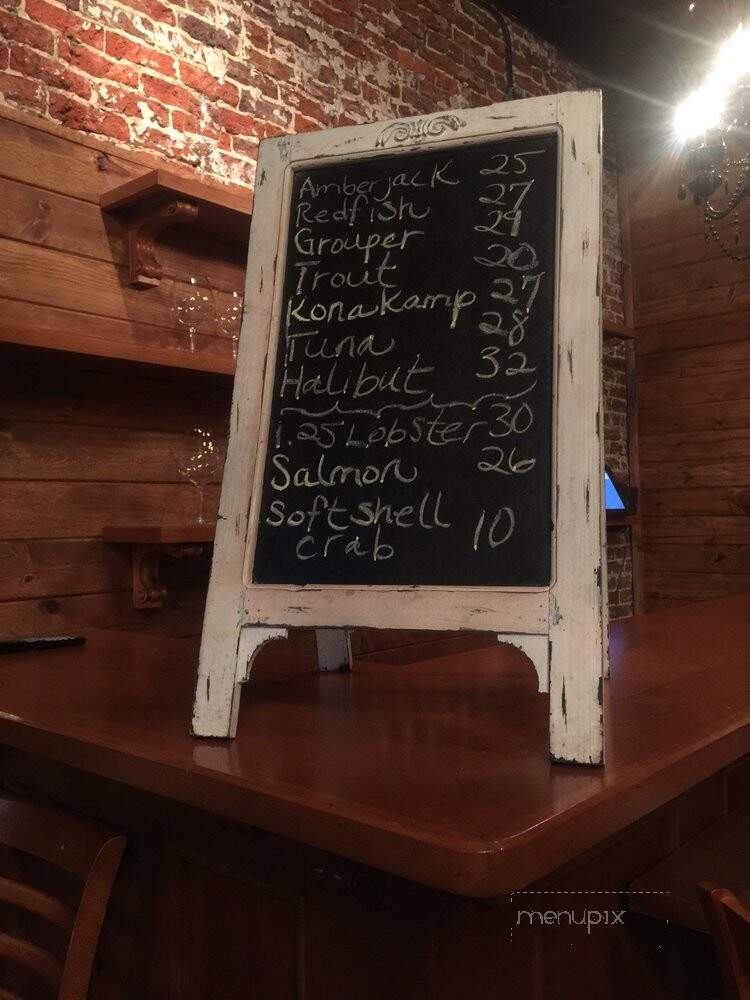 Amberjack 25
Redfish 27
Grouper 29
Trout 20
Kona Kamp 27
Tuna 28
Halibut 32
1.25 Lobster 30
Salmon 26
Soft shell
crab 10
menupix